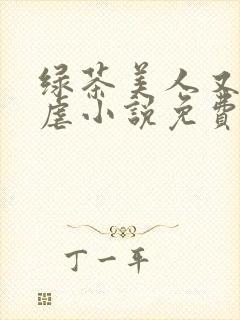 绿茶美人又
虐小説免費
丁一平